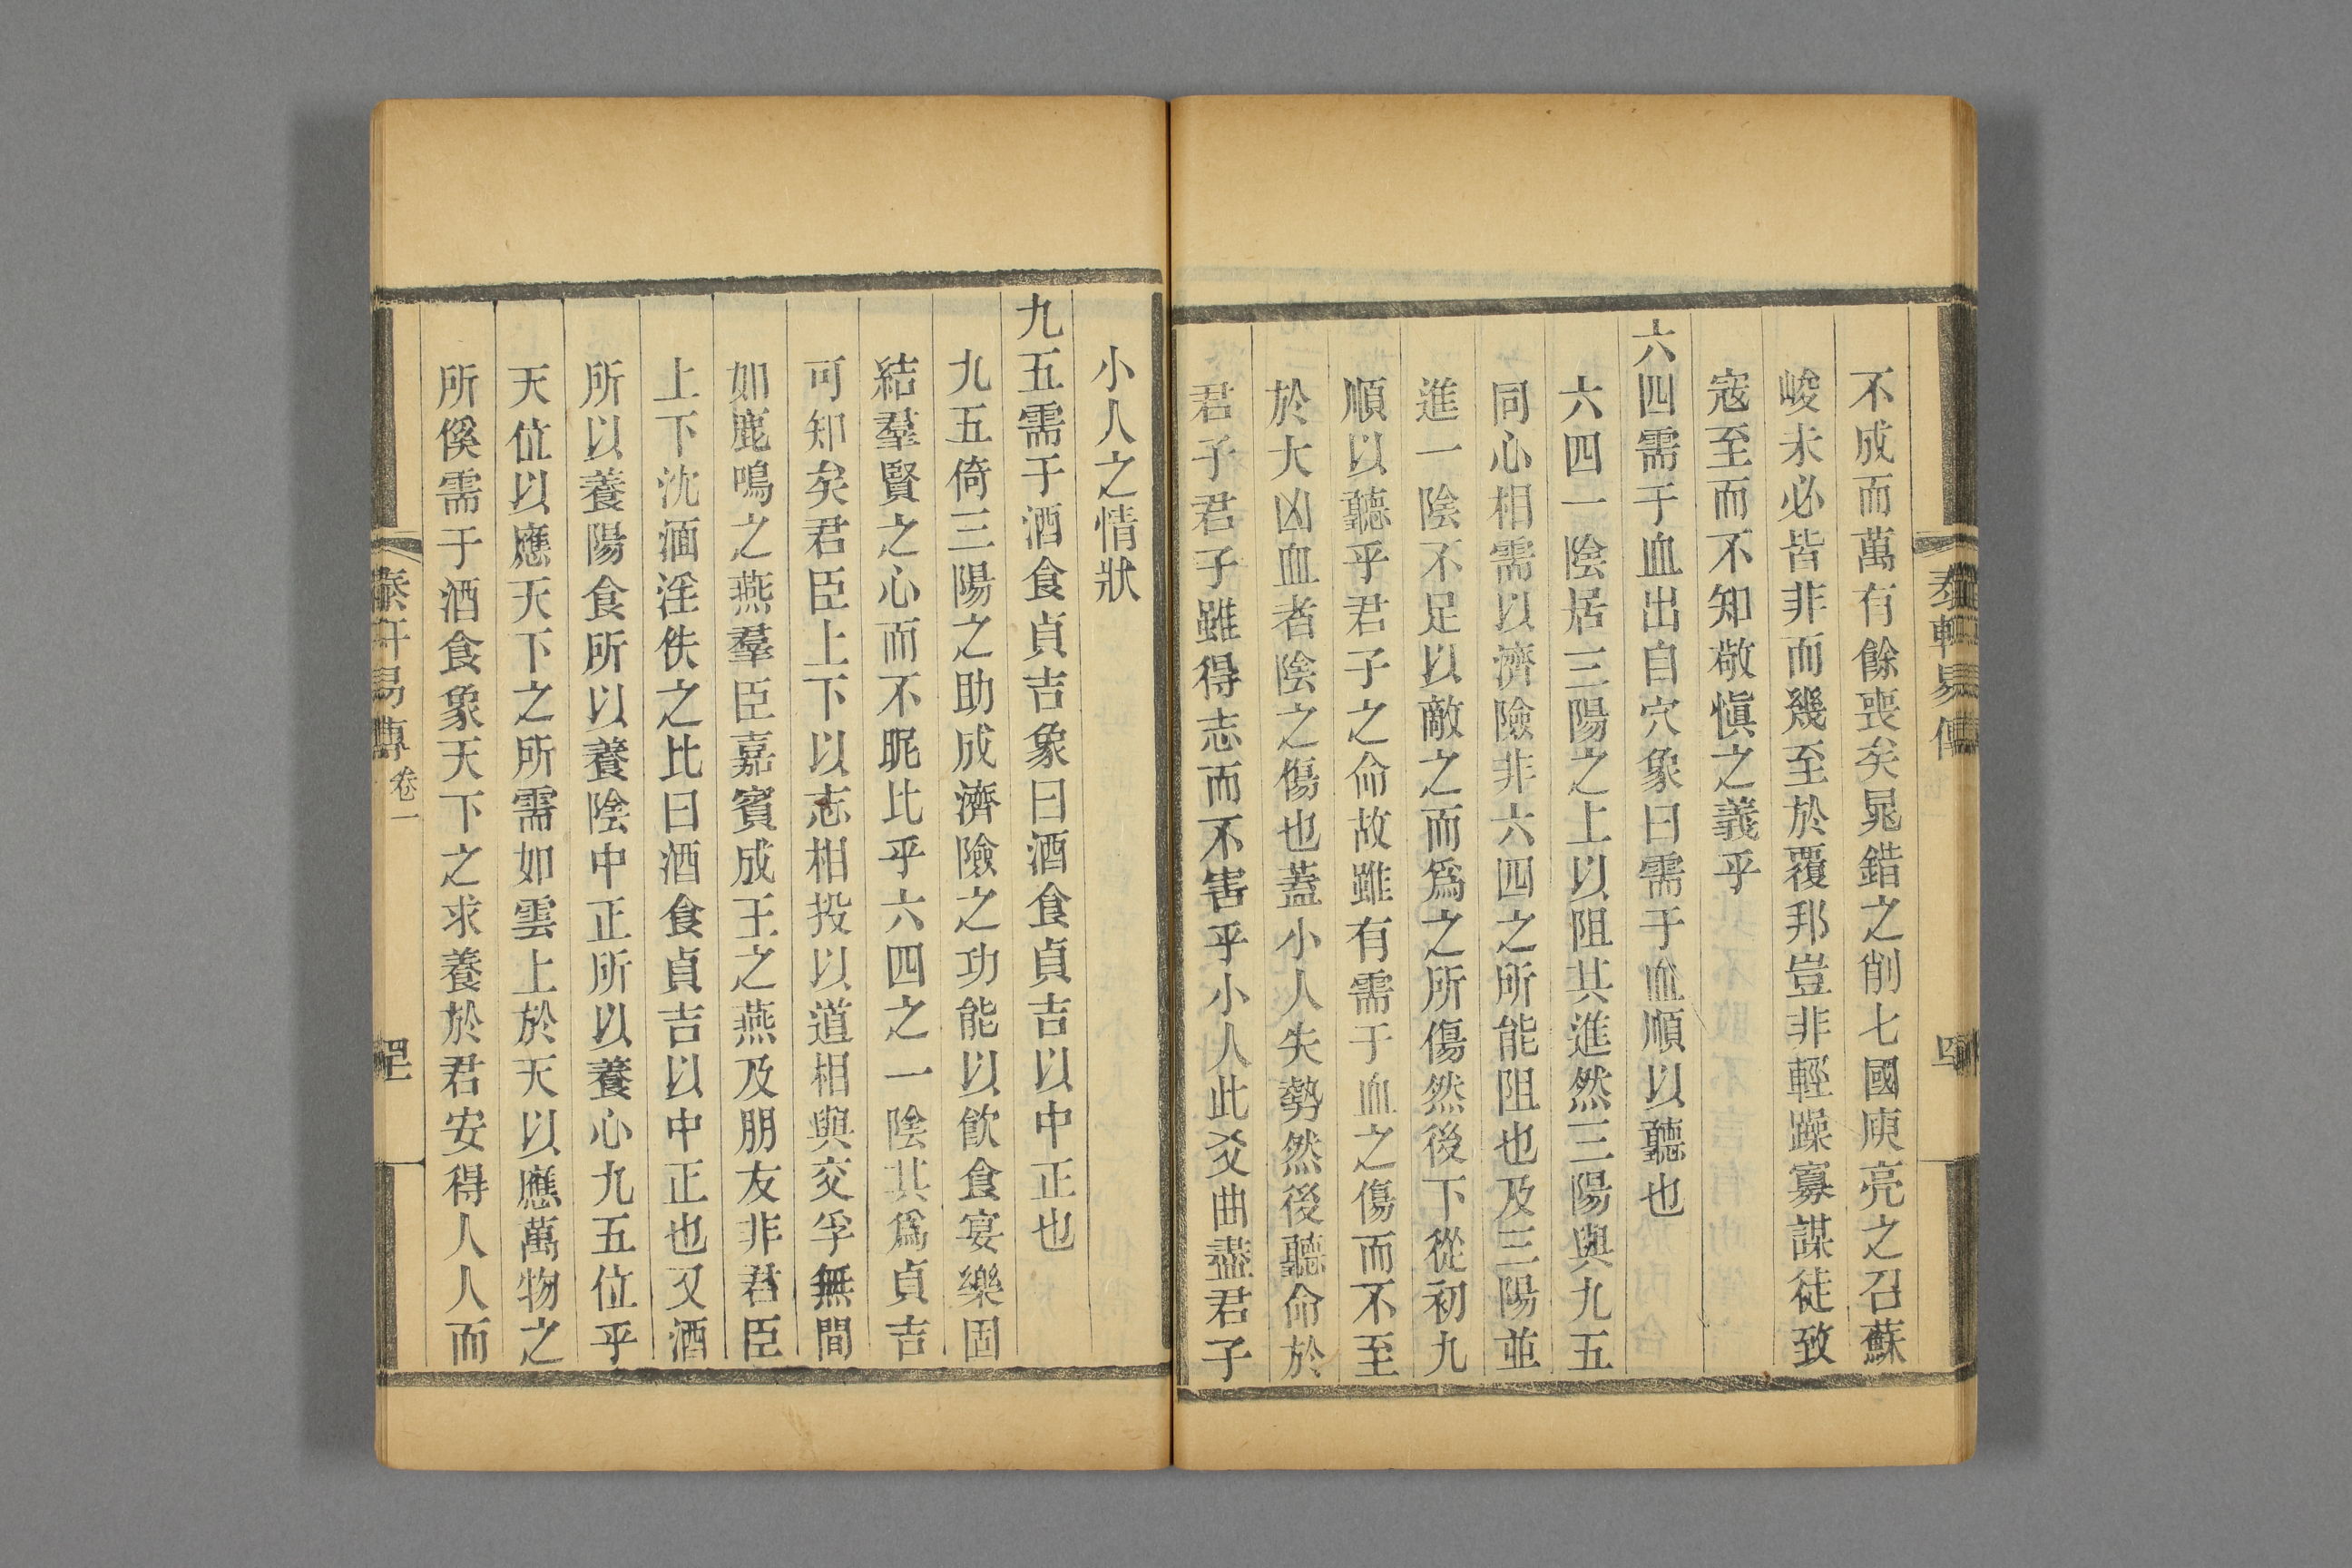 不成而萬有餘喪矣晁錯之削七國庾亮之召蘇
峻未必皆非而幾至於覆邦豈非輕躁寡謀徒致
寇至而不知敬愼之義乎
六四需于血出自穴象曰需于血順以聽也
六四一陰居三陽之上以阻其進然三陽與九五
同心相需以濟險非六四之所能阻也及三陽並
進一陰不足以敵之而爲之所傷然後下從初九
順以聽乎君子之命故雖有需于血之傷而不至
於大凶血者陰之傷也蓋小人失勢然後聽命於
君子君子雖得志而不害乎小人此爻曲盡君子
小人之情狀
九五需于酒食貞吉象曰酒食貞吉以中正也
九五倚三陽之助成濟險之功能以飲食宴樂固
結羣賢之心而不昵比乎六四之一陰其爲貞吉
可知矣君臣上下以志相投以道相與交孚無間
如鹿鳴之燕羣臣嘉賓成王之燕及朋友非君臣
上下沈湎淫佚之比曰酒食貞吉以中正也又酒
所以養陽食所以養陰中正所以養心九五位乎
天位以應天下之所需如雲上於天以應萬物之
所傒需于酒食象天下之求養於君安得人人而
易傳
卷一